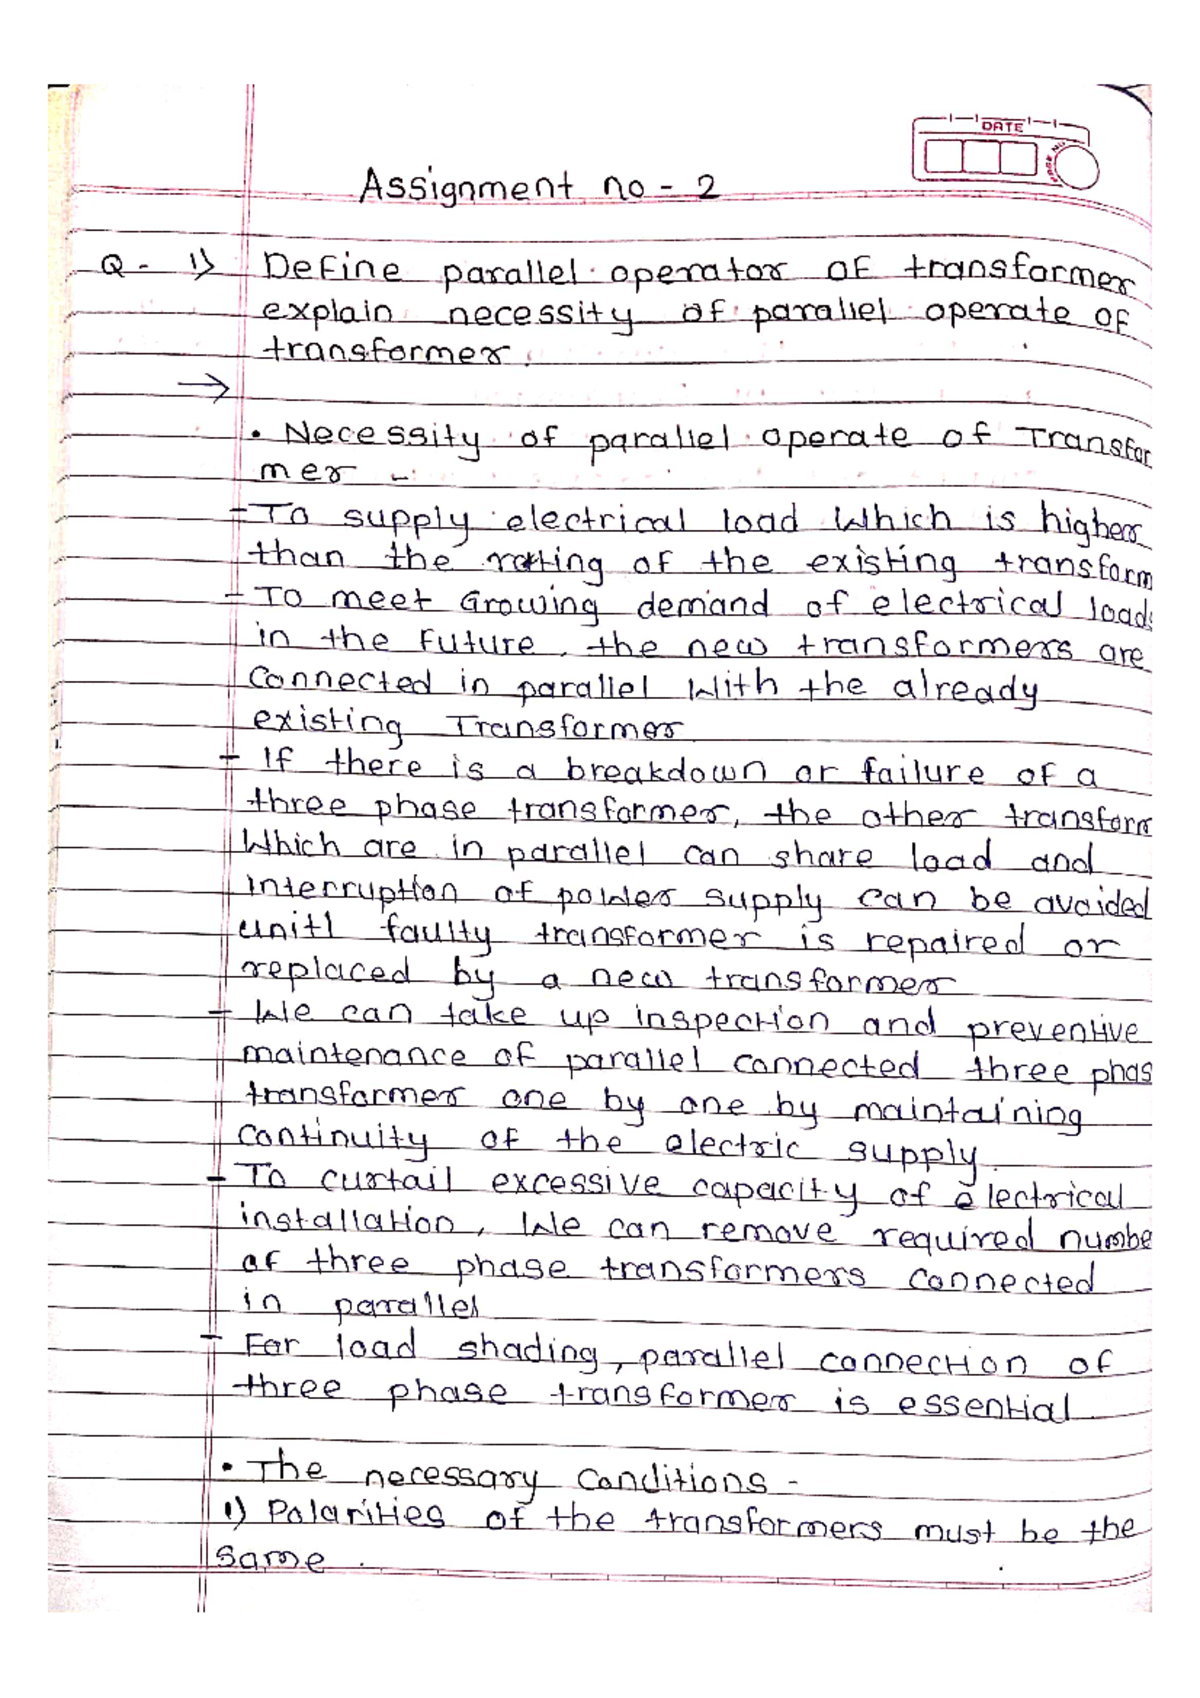 DATE
PAGE NO
Assignment no - 2
Q - 1) Define parallel operator of transformer
explain necessity of parallel operate of
transformer.
→
• Necessity of parallel operate of Transfor
mer -
- To supply electrical load which is higher
than the rating of the existing transform
- To meet Growing demand of electrical loads
in the Future, the new transformers are
connected in parallel with the already
existing Transformer
- If there is a breakdown or failure of a
three phase transformer, the other transform
which are in parallel can share load and
interruption of power supply can be avoided
unitl faulty transformer is repaired or
replaced by a new transformer
- We can take up inspection and preventive
maintenance of parallel connected three phas
transformer one by one by maintaining
continuity of the electric supply.
- To curtail excessive capacity of electrical
installation, we can remove required numbe
of three phase transformers connected
in parallel
- For load shading, parallel connection of
three phase transformer is essential
• The necessary conditions -
1) Polarities of the transformers must be the
same.